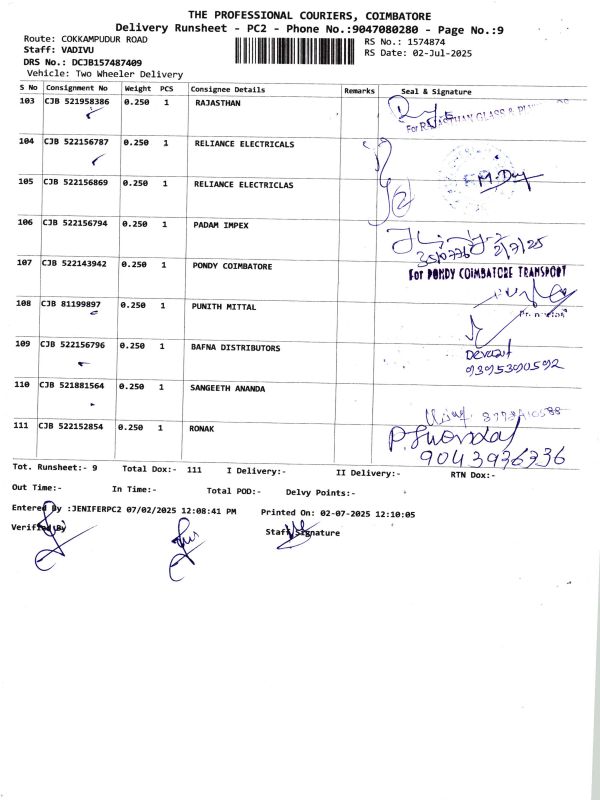 THE PROFESSIONAL COURIERS, COIMBATORE
Delivery Runsheet - PC2 - Phone No.:9047080280 - Page No.:9
Route: COKKAMPUDUR ROAD
RS No.: 1574874
Staff: VADIVU
RS Date: 02-Jul-2025
DRS No.: DCJB157487409
Vehicle: Two Wheeler Delivery
S No Consignment No Weight PCS Consignee Details Remarks Seal & Signature
103 CJB 521958386 0.250 1 RAJASTHAN
For RAJASTHAN GLASS &
104 CJB 522156787 0.250 1 RELIANCE ELECTRICALS
105 CJB 522156869 0.250 1 RELIANCE ELECTRICLAS
106 CJB 522156794 0.250 1 PADAM IMPEX
2/7/25
107 CJB 522143942 0.250 1 PONDY COIMBATORE
For PONDY COIMBATORE TRANSPORT
108 CJB 81199897 0.250 1 PUNITH MITTAL
109 CJB 522156796 0.250 1 BAFNA DISTRIBUTORS
9395390592
110 CJB 521881564 0.250 1 SANGEETH ANANDA
111 CJB 522152854 0.250 1 RONAK
9043936336
Tot. Runsheet:- 9 Total Dox:- 111 I Delivery:- II Delivery:- RTN Dox:-
Out Time:- In Time:- Total POD:- Delvy Points:-
Entered By :JENIFERPC2 07/02/2025 12:08:41 PM Printed On: 02-07-2025 12:10:05
Verified By Staff Signature